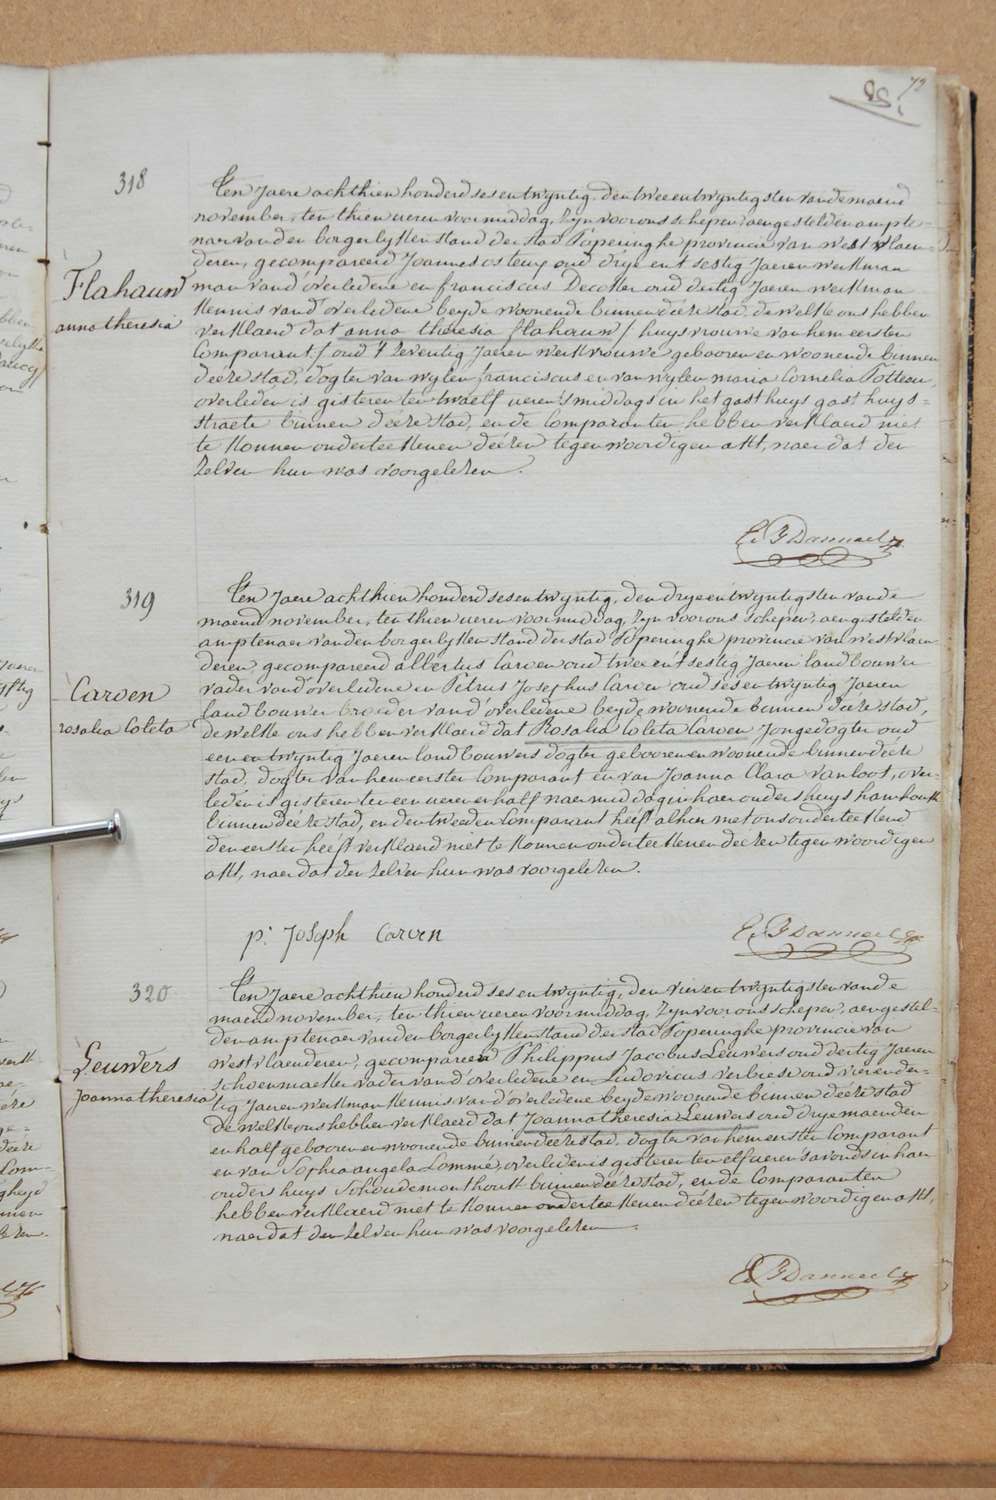 72
318
Ten Jaere achthien honderd sesentwyntig, den tweeentwyntigsten van de maend
november, ten thien ueren voormiddag, Zyn voor ons schepen, aengestelden ampte-
naer van den borgerlyken stand der stad Poperinghe provincie van West Vlaen-
deren, gecompareerd Joannes osteuy oud drye en t sestig Jaeren werkman
Flahauw
man van d'overledene en franciscus Decoker oud dertig Jaeren werkman
annatheresia
kennis van d'overledene beyde woonende binnen deéze stad, de welke ons hebben
verklaerd dat anna theresia flahauw / huysvrouwe van hem eersten
Comparant / oud t zeventig Jaeren werkvrouwe gebooren en woonende binnen
deéze stad, dogter van wylen franciscus en van wylen maria Cornelia Totteau,
overleden is gisteren ten twaelf ueren s'middags in het gasthuys gasthuys-
straete binnen deéze stad, en de Comparanten hebben verklaerd niet
te konnen onderteekenen deézen tegenwoordigen akt, naer dat den
zelven hun was voorgelezen.
319
Ten Jaere achthien honderd sesentwyntig, den dryeentwyntigsten van de
maend november, ten thien ueren voormiddag, Zyn voor ons schepen, aengestelden
amptenaer van den borgerlyken stand der stad Poperinghe provincie van westvlaen
deren, gecompareerd albertus Carven oud twee en t sestig Jaeren landbouwer
Carven
vader van d'overledene en Petrus Josephus Carven oud sesentwyntig Jaeren
landbouwer broeder van d'overledene beyde woonende binnen deéze stad,
rosalia Coleta
de welke ons hebben verklaerd dat Rosalia Coleta Carven Jongedogter oud
een en twyntig Jaeren landbouwers dogter gebooren en woonende binnen deéze
stad, dogter van hem eersten Comparant en van Joanna Clara vanloot, over-
leden is gisteren ten een uer en half naermiddag in haer ouders huys hamhoek
binnen deéze stad, en den tweeden Comparant heeft alhier met ons onderteekend
den eersten heeft verklaerd niet te konnen onderteekenen deézen tegenwoordigen
akt, naer dat den zelven hun was voorgelezen.
p: Joseph Carven
320
Ten Jaere achthien honderd ses en twyntig, den vierentwyntigsten van de
maend november, ten thien ueren voormiddag, Zyn voor ons schepen, aengestel-
den amptenaer van den borgerlyken stand der stad Poperinghe provincie van
westvlaenderen, gecompareerd Philippus Jacobus Leuwers oud dertig Jaeren
Leuwers
schoenmaeker vader van d'overledene en Ludovicus verbiese oud vier en der-
Joannatheresia
tig Jaeren werkman kennis van d'overledene beyde woonende binnen deéze stad
de welke ons hebben verklaerd dat Joanna theresia Leuwers oud drye maenden
en half gebooren en woonende binnen deéze stad, dogter van hem eersten Comparant
en van Sophia angela Lommé, overleden is gisteren ten elf ueren s'avonds in haer
ouders huys Schoudemonthoek binnen deéze stad, en de Comparanten
hebben verklaerd niet te konnen onderteekenen deézen tegenwoordigen akt,
naer dat den zelven hun was voorgelezen.